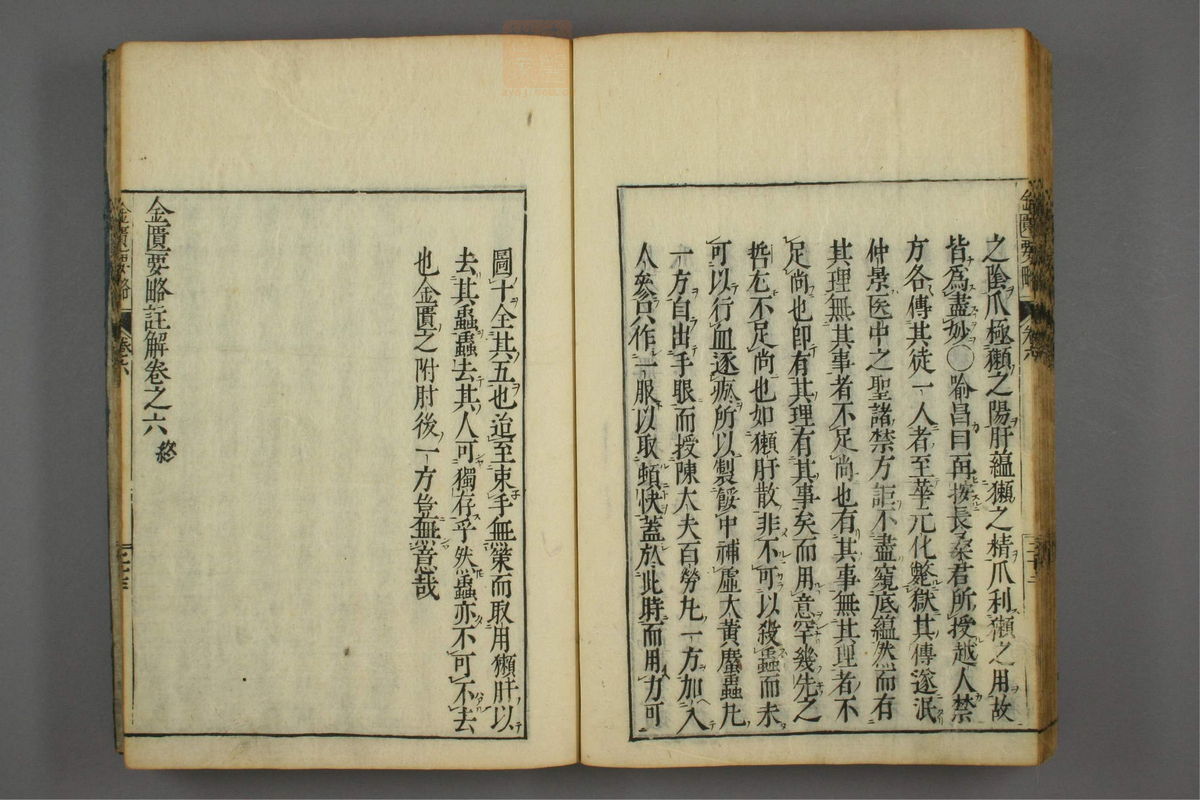 之陰爪極獺之陽肝蘊獺之精爪利獺之用故
皆爲盡妙〇喻昌曰再按長桑君所授越人禁
方各傳其徒一人者至華元化斃獄其傳遂泯
仲景医中之聖諸禁方詎不盡窺底蘊然而有
其理無其事者不足尚也有其事無其理者不
足尚也即有其理有其事矣而用意罕幾先之
哲亦不足尚也如獺肝散非不可以殺蟲而未
可以行血逐瘀所以製緩中補虛大黃䗪蟲凡
一方自出手眼而授陳大夫百勞凡一方加入
人參只作一服以取頓快蓋於此時而用力可
圖十全其五也迨至束手無策而取用獺肝以
去其蟲蟲去其人可獨存乎然蟲亦不可不去
也金匱之附肘後一方豈無意哉
金匱要略註解卷之六 終
金匱要略 卷六